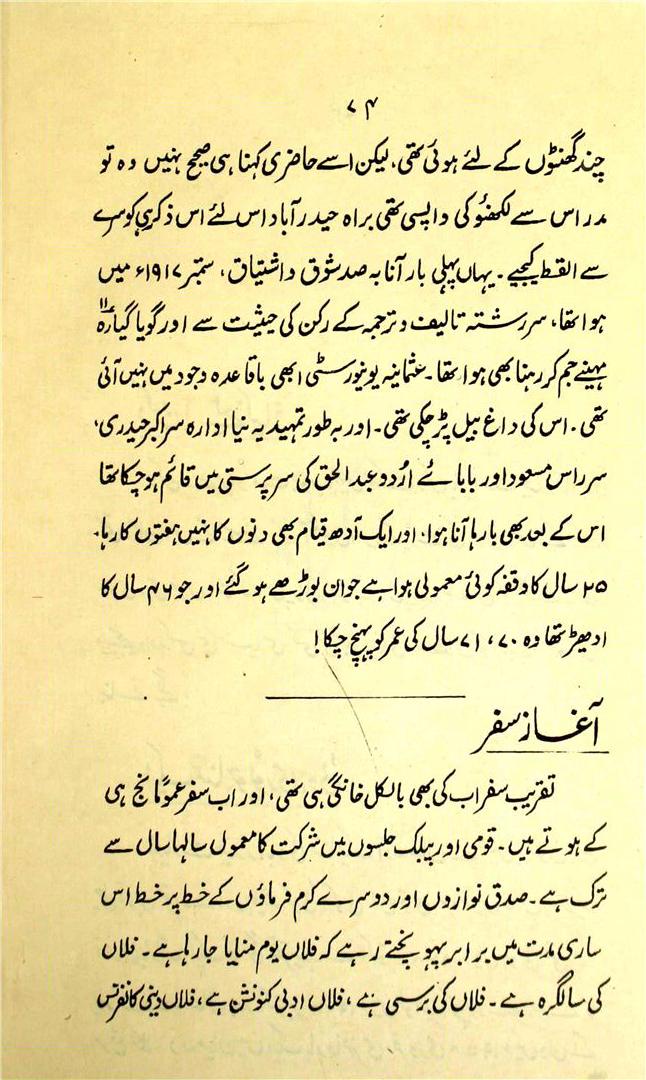 ۷۴
چند گھنٹوں کے لئے ہوئی تھی، لیکن اسے حاضری کہنا ہی صحیح نہیں وہ تو
مدراس سے لکھنؤ کی واپسی تھی براہ حیدرآباد اس لئے اس ذکر ہی کو سرے
سے القط کیجیے۔ یہاں پہلی بار آنا بہ صد شوق و اشتیاق، ستمبر ۱۹۱۷ء میں
ہوا تھا، سررشتہ تالیف و ترجمہ کے رکن کی حیثیت سے اور گویا گیارہ ۱۱
مہینے جم کر رہنا بھی ہوا تھا۔ عثمانیہ یونیورسٹی ابھی باقاعدہ وجود میں نہیں آئی
تھی۔ اس کی داغ بیل پڑ چکی تھی۔ اور بہ طور تمہید یہ نیا ادارہ سر اکبر حیدری،
سر راس مسعود اور بابائے اُردو عبدالحق کی سرپرستی میں قائم ہو چکا تھا
اس کے بعد بھی بارہا آنا ہوا، اور ایک آدھ قیام بھی دنوں کا نہیں ہفتوں کا رہا۔
۲۵ سال کا وقفہ کوئی معمولی ہوا ہے جوان بوڑھے ہو گئے اور جو ۴۶ سال کا
ادھیڑ تھا وہ ۷۰، ۷۱ سال کی عمر کو پہنچ چکا!
آغاز سفر
تقریب سفر اب کی بھی بالکل خانگی ہی تھی، اور اب سفر عموماً نج ہی
کے ہوتے ہیں۔ قومی اور پبلک جلسوں میں شرکت کا معمول سالہا سال سے
ترک ہے۔ صدق نوازوں اور دوسرے کرم فرماؤں کے خط پر خط اس
ساری مدت میں برابر پہونچتے رہے کہ فلاں یوم منایا جا رہا ہے۔ فلاں
کی سالگرہ ہے۔ فلاں کی برسی ہے، فلاں ادبی کنونشن ہے، فلاں دینی کانفرنس